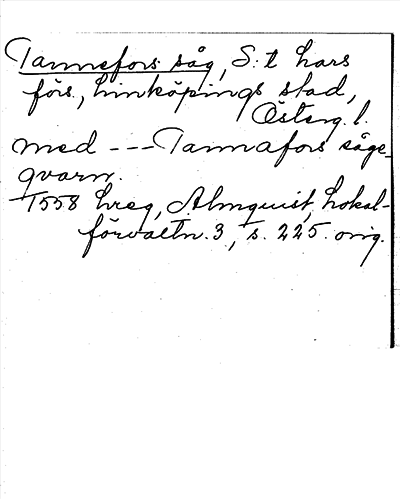 Tannefors såg, S:t Lars
förs., Linköpings stad,
Österg. l.
med --- Tannafors såge-
qvarn.
1558 Lreg, Almquist, Lokal-
förvaltn. 3, s. 225. orig.